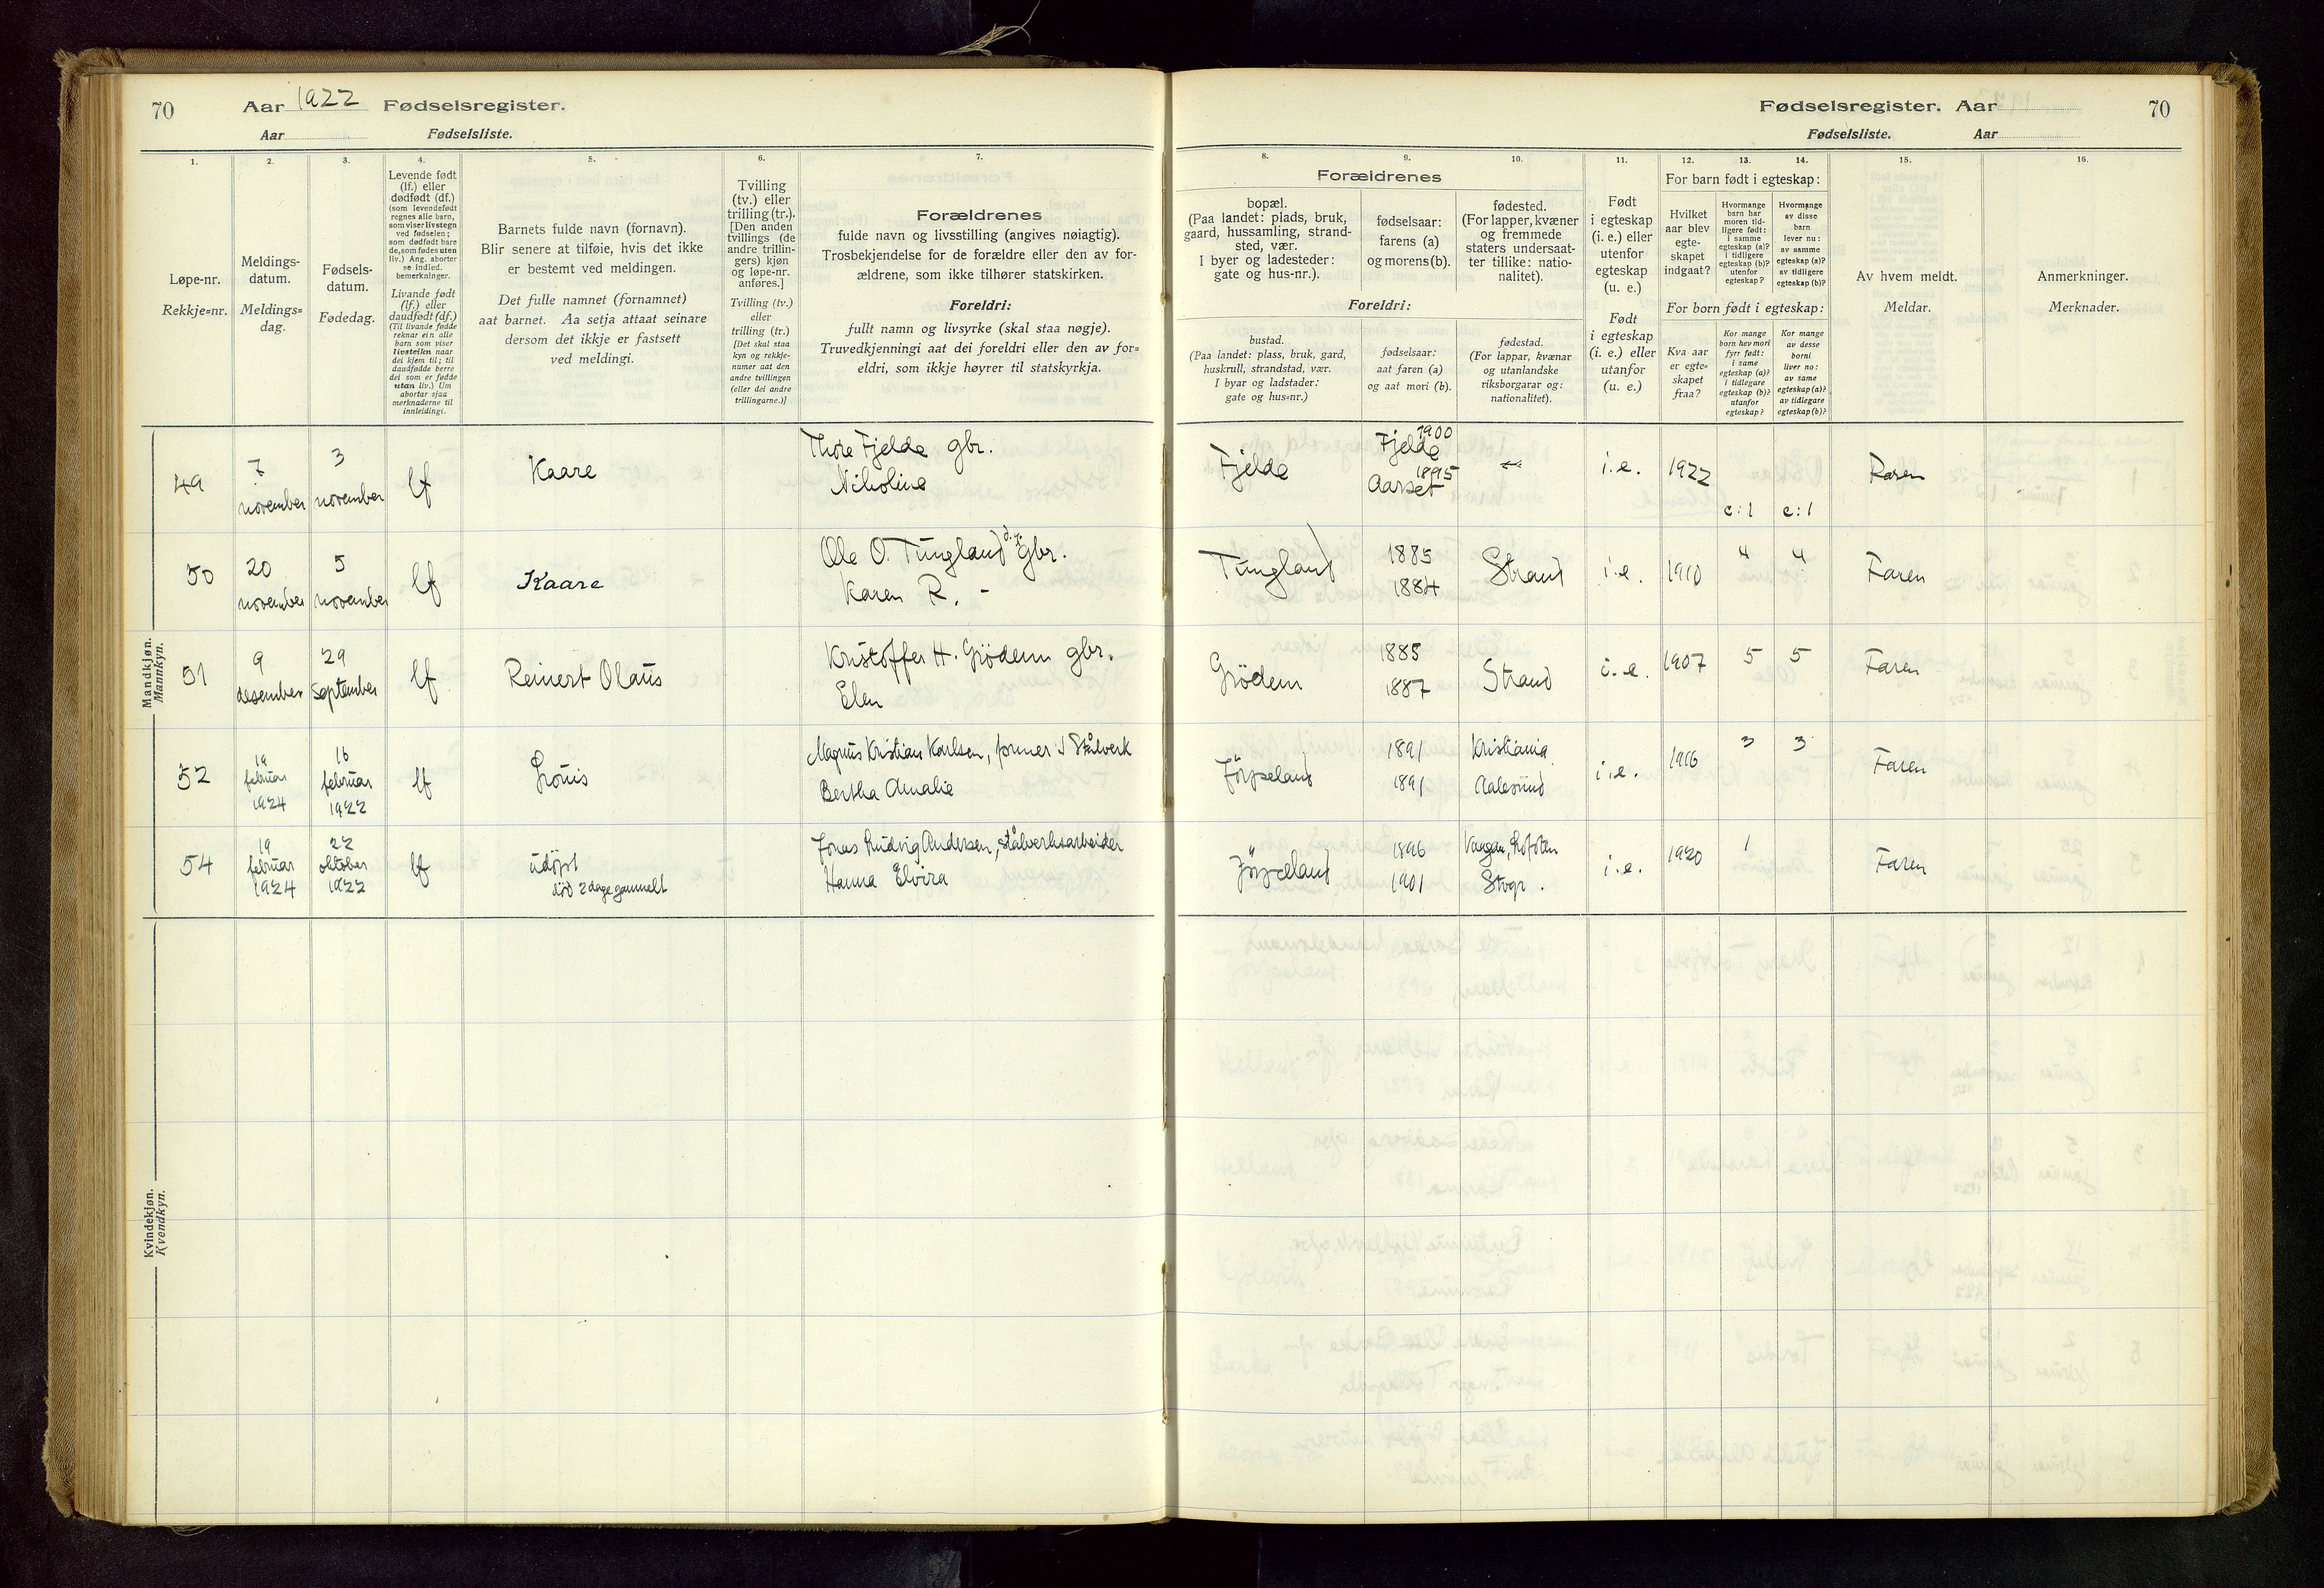 70 Aar 1922 Fødselsregister.
Aar Fødselsliste.
Fødselsregister. Aar 70
Fødselsliste. Aar
1. 2. 3. 4. 5. 6. 7.
Løpe-nr.
Rekkje=nr.
Meldings-
datum.
Meldings=
dag.
Fødsels-
datum.
Fødedag.
Levende født
(lf.) eller
dødfødt (df.)
(som levendefødt
regnes alle barn,
som viser livstegn
ved fødselen;
som dødfødt bare
de, som fødes uten
liv.) Ang. aborter
se indled.
bemerkninger.
Livande født
(lf.) eller
daudfødt (df.)
(Til livande fødde
reknar ein alle
barn som viser
livsteikn naar
dei kjem til; til
daudfødde berre
dei som er fødde
utan liv.) Um
abortar sjaa
merknaderne til
innleidingi.
Barnets fulde navn (fornavn).
Blir senere at tilføie, hvis det ikke
er bestemt ved meldingen.
Det fulle namnet (fornamnet)
aat barnet. Aa setja attaat seinare
dersom det ikkje er fastsett
ved meldingi.
Tvilling
(tv.) eller
trilling (tr.).
[Den anden
tvillings (de
andre trillin-
gers) kjøn
og løpe-nr.
anføres.]
Tvilling (tv.)
eller
trilling (tr.)
[Det skal staa
kyn og rekkje-
numer aat den
andre tvillingen
(eller dei andre
trillingarne.)]
Forældrenes
fulde navn og livsstilling (angives nøiagtig).
Trosbekjendelse for de forældre eller den av for-
ældrene, som ikke tilhører statskirken.
Foreldri:
fullt namn og livsyrke (skal staa nøgje).
Truvedkjenningi aat dei foreldri eller den av for=
eldri, som ikkje høyrer til statskyrkja.
8. 9. 10. 11. 12. 13. 14. 15. 16.
Forældrenes
bopæl.
(Paa landet: plads, bruk,
gaard, hussamling, strand-
sted, vær.
I byer og ladesteder:
gate og hus-nr.).
fødselsaar:
farens (a)
og morens (b).
fødested.
(For lapper, kvæner
og fremmede
staters undersaat-
ter tillike: natio-
nalitet).
Foreldri:
bustad.
(Paa landet: plass, bruk, gard,
huskrull, strandstad, vær.
I byar og ladstader:
gate og hus=nr.)
fødselsaar:
aat faren (a)
og aat mori (b).
fødestad.
(For lappar, kvænar
og utanlandske
riksborgarar og:
nationalitet).
Født
i egteskap
(i. e.) eller
utenfor
egteskap
(u. e.)
Født
i egteskap
(i. e.) eller
utanfor
(u. e.)
For barn født i egteskap:
Hvilket
aar blev
egte-
skapet
indgaat?
Hvormange
barn har
moren tid-
ligere født:
i samme
egteskap (a)?
i tidligere
egteskap (b)?
utenfor
egteskap?
Hvormange
av disse
barn
lever nu:
av samme
egteskap (a)?
av tidligere
egteskap (b)?
For born født i egteskap:
Kva aar
er egte=
skapet
fraa?
Kor mange
born hev mori
fyrr født:
i same
egteskap (a)?
i tidlegare
egteskap (b)?
utanfor
egteskap?
Kor mange
av desse
borni
liver no:
av same
egteskap (a)?
av tidlegare
egteskap (b)?
Av hvem meldt.
Meldar.
Anmerkninger.
Merknader.
Mandkjøn.
Mannkyn.
49 7 november 3 november lf Kaare Thore Fjelde gbr.
Nikoline
Fjelde Fjelde 1900
Aarset 1895
i.e. 1922 c:1 c:1 Faren
50 20 november 5 november lf Kaare Ole O. Tungland gbr.
Karen R. -
Tungland 1885
1884 Strand i.e. 1910 4 4 Faren
51 9 desember 29 September lf Reinert Olaus Kristoffer H. Grödem gbr.
Elen
Grödem 1885
1887 Strand i.e. 1907 5 5 Faren
52 19 februar 1924 16 februar 1922 lf Louis Magnus Kristian Karlsen, former v Stålverk
Bertha Amalie
Jörpeland 1891 Kristiania
1891 Aalesund i.e. 1916 3 3 Faren
54 19 februar 1924 22 oktober 1922 lf udöpt
död 2 dage gammelt
Jonas Ludvig Andersen, Stålverksarbeider
Hanna Elvira
Jörpeland 1896 Vaagan, Lofoten
1901 Stvgr. i.e. 1920 1 Faren
Kvindekjøn.
Kvendkyn.